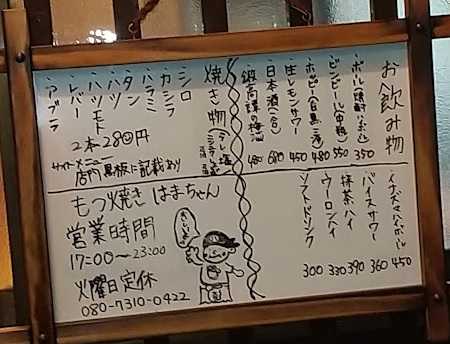 お飲み物
ボール(焼酎ハイボール) 350
ビンビール(中瓶) 550
ホッピー(白黒 480
生レモンサワー 450
日本酒(一合) 680
鍛高譚の梅酒 480
ハイボール 450
バイスサワー 360
抹茶ハイ 390
ウーロンハイ 330
ソフトドリンク 300
焼き物
シロ
カシラ
ハラミ
タン
ハツ
ハツモト
レバー
アブラ
2本280円
サイドメニュー
店内黒板に記載あり
もつ焼き はまちゃん
営業時間
17:00~23:00
火曜日定休
080-7310-0422